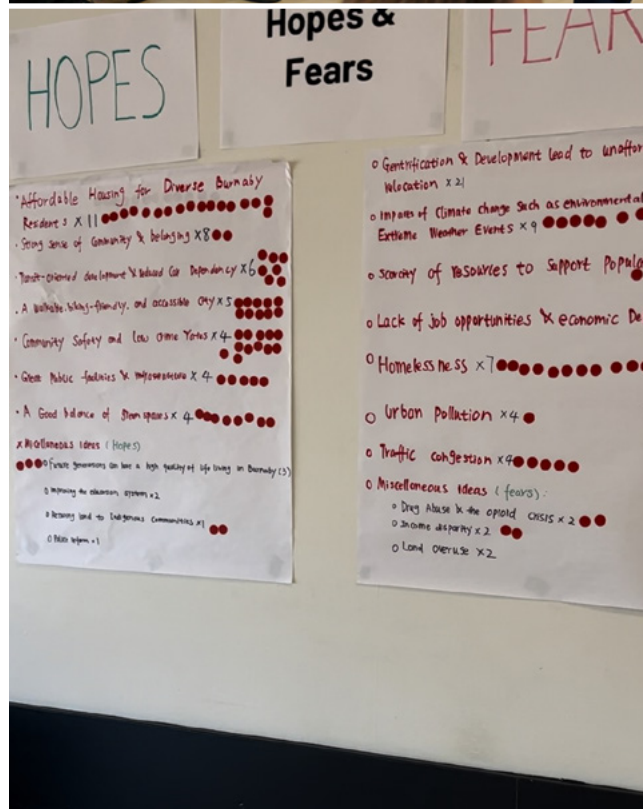 HOPES
Hopes &
Fears
FEAR
• Affordable Housing for Diverse Burnaby
Residents x 11
• Strong sense of Community & belonging x8
• Transit-oriented development & reduced Car Dependency x 6
• A walkable, biking-friendly, and accessible city x 5
• Community Safety and low crime rates x 4
• Great Public facilities & infrastructure x 4
• A Good balance of green spaces x 4
x Miscellaneous Ideas (Hopes)
o Future generations can have a high quality of life living in Burnaby (3)
o Improving the education system x2
o Returning land to Indigenous Communities x1
o Police reform x1
o Gentrification & Development lead to unaffor
relocation x 21
o Impacts of Climate change Such as environmental
Extreme Weather Events x 9
o scarcity of resources to support Popula
o Lack of job opportunities & economic De
o Homelessness x7
o Urban Pollution x4
o Traffic congestion x4
o Miscellaneous Ideas (fears):
o Drug Abuse & the opioid crisis x 2
o Income disparity x 2
o Land overuse x2